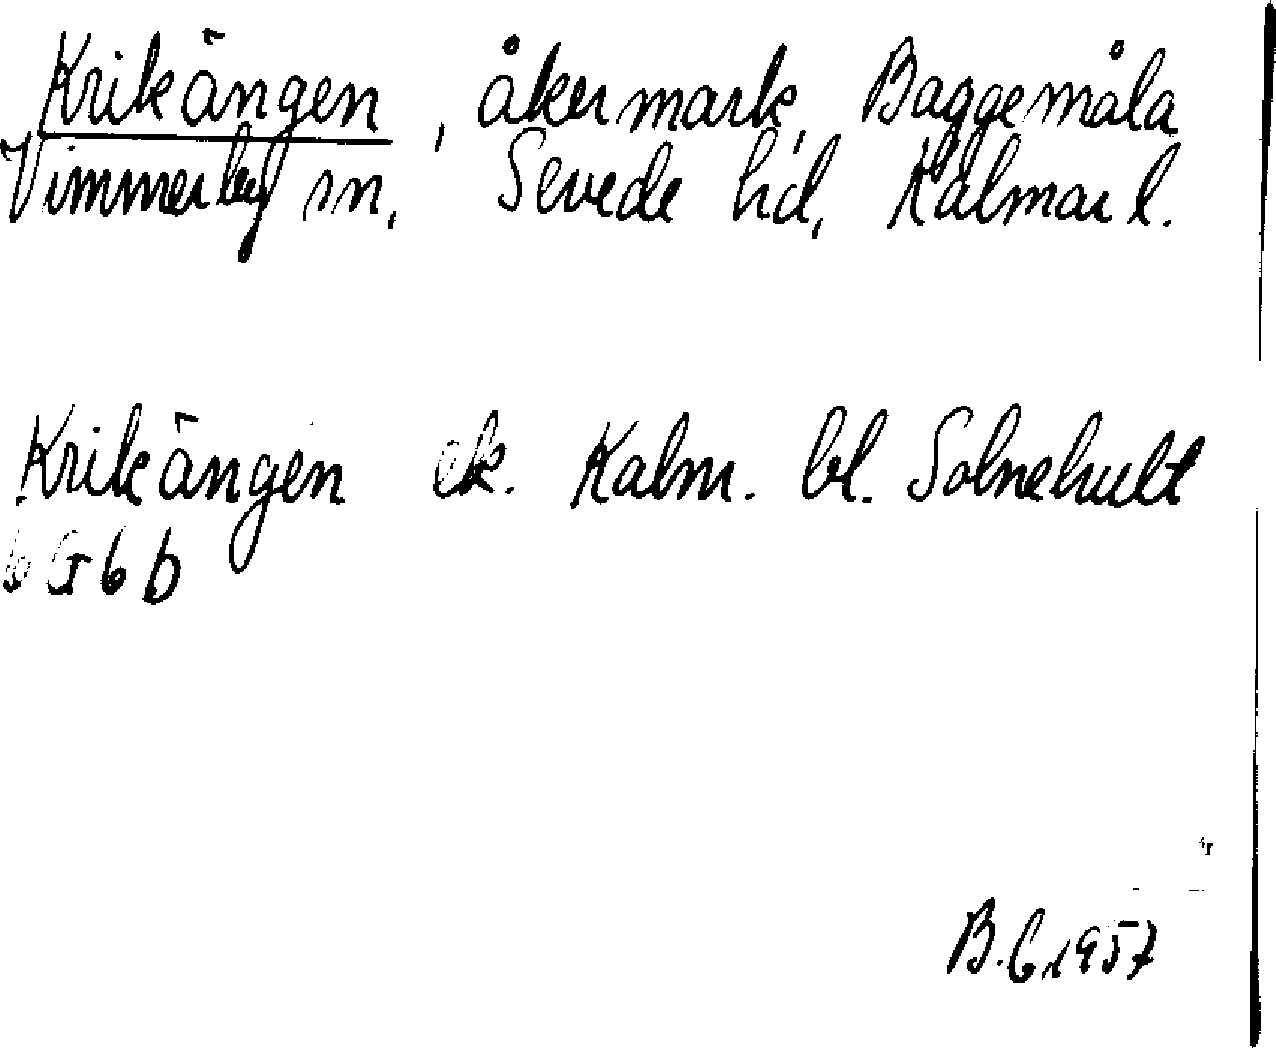 Krikängen, åkermark, Baggemåla
Vimmerby sn, Sevede hd, Kalmar l.
Krikängen ek. Kalm. bl. Solnehult
6 G 6 b
B.G 1957